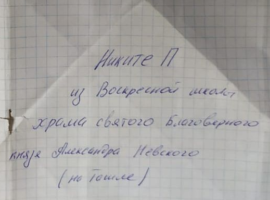 Никите П
из Воскресной школы
храма святого Благоверного
князя Александра Невского
(на Тошле)